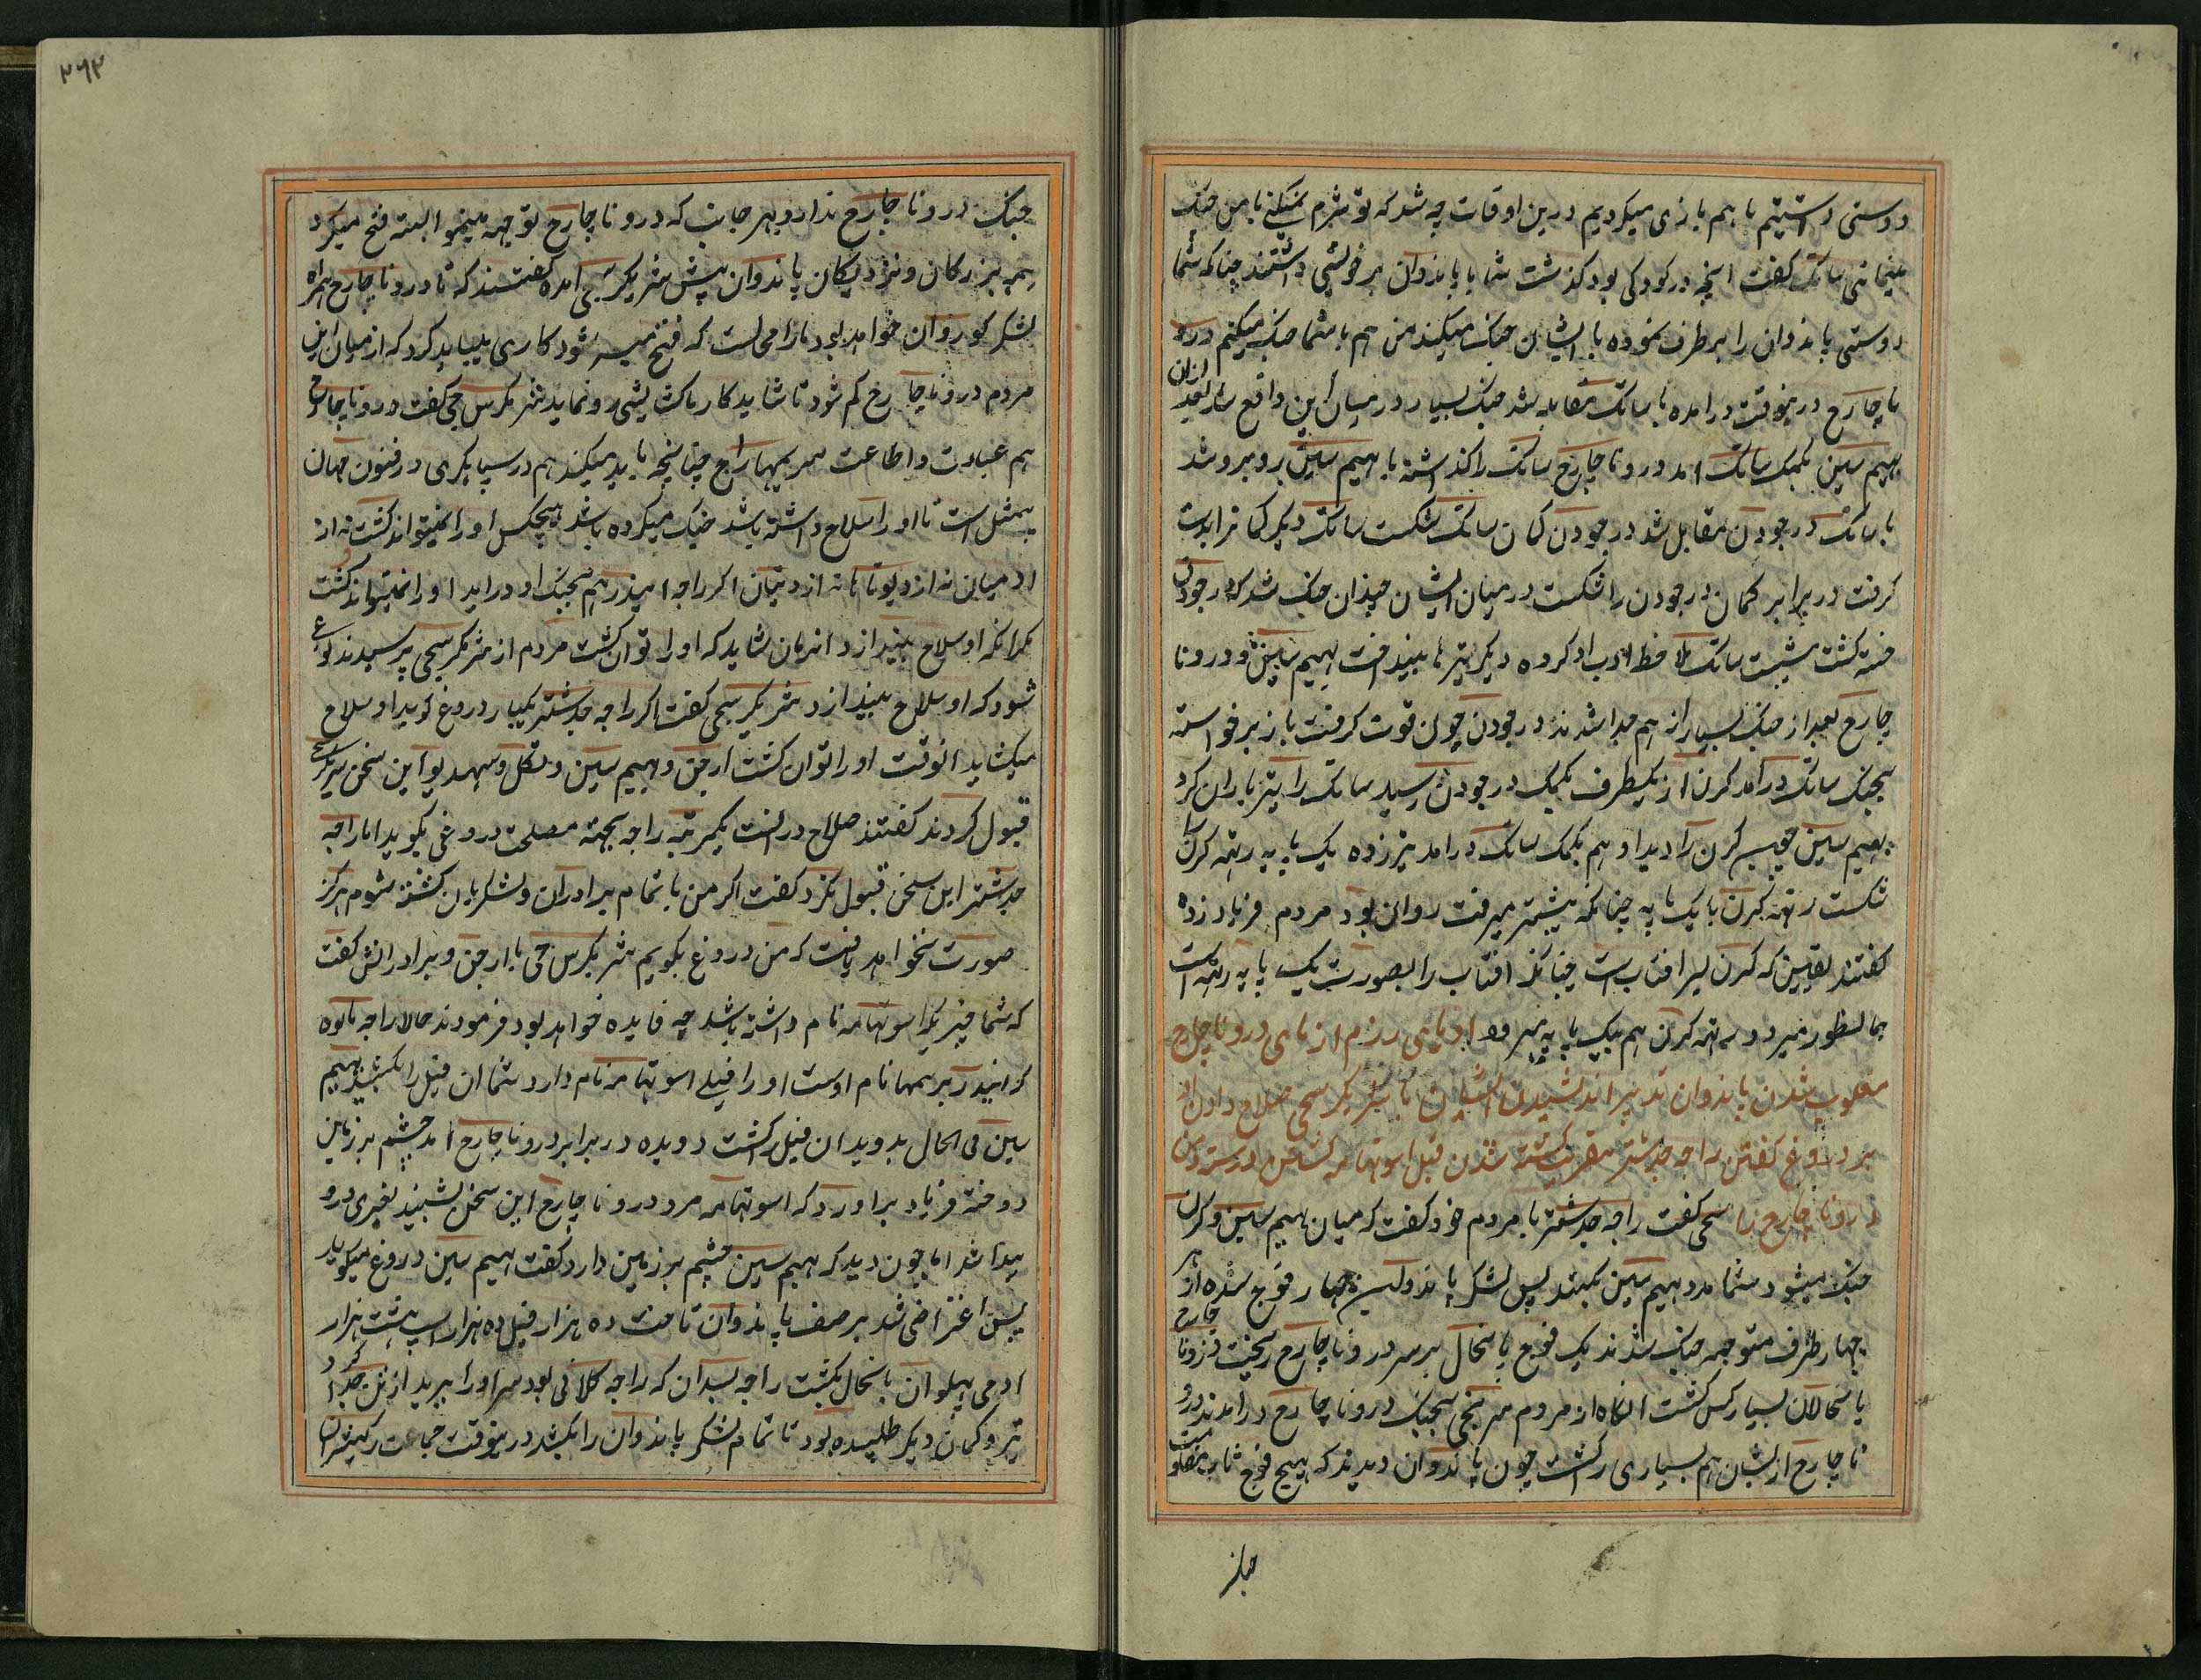 دوستی داشتیم با هم بازی میکردیم درین اوقات چه شد که تو شرم نمیکنی با من جنک
مینمائی ساتک کفت انچه در کودکی بود کذشت شما با پاندوان هم خویشی داشتند چنانکه شما
دوستی پاندوان را برطرف نموده با ایشان جنک میکنید من هم با شما جنک میکنم درو
ناچارج درینوقت درامده با ساتک مقابله شد جنک بسیار در میان این واقع شد بعد ازان
بهیم سین بکمک ساتک امد درونا چارج ساتک را کذاشته با بهیم سین روبرو شد
با ساتک درجودن مقابل شد درجودن کمان ساتک شکست ساتک دیکر کمانرا بدست
کرفت در برابر کمان درجودن را شکست در میان ایشان چندان جنک شد که درجودن
خسته کشت ساتک ملاحظه ادب او کرده دیکر تیرها نینداخت بهیم سین و درونا
چارج بعد از جنک بسیار از هم جدا شدند درجودن چون قوت کرفت باز برخواسته
بجنک ساتک درآمد کرن از یکطرف بکمک درجودن رسید ساتک را تیرباران کرد
بهیم سین چون کرن را دید او هم بکمک ساتک درامد تیر زده یک پایه رتهه کرن را
شکست رتهه کرن با یک پایه چنانکه پیشتر میرفت روان بود مردم فریاد زده
کفتند یقین که کرن پسر افتاب است چنانکه افتاب را بصورت یک پایه رتهه است
همانطور میرود رتهه کرن هم بیک پایه میرود ادیای رزم ازمای درونا چارج
مغلوب شدن پاندوان تدبیر اندیشیدن ایشان با شریکرسجی صلاح دادن او
بر دروغ کفتن راجه جدشتر بتقریب کشته شدن فیل اسوتهامه نام
درونا چارج را سجی کفت راجه جدشتر با مردم خود کفت که میان بهیم سین و کرن
جنک میشود شما مدد بهیم سین بکنید پس لشکر پاندوان چهار فوج شده از هر
چهار طرف متوجه جنک شدند یک فوج پانچال بر سر درونا چارج ریخت درونا چارج
پانچالان بسیار کس کشت انکاه از مردم سرنجی بجنک درونا چارج درامدند درو
نا چارج از ایشان هم بسیاری را کشت چون پاندوان دیدند که هیچ فوج تاب مقاومت
جنک
۲۶۲
جنک درونا چارج ندارد و بهر جانب که درونا چارج توجه مینمود البته فتح میکرد
همه بزرکان و نزدیکان پاندوان پیش شریکرسجی امده کفتند که تا درونا چارج همراه
لشکر کوروان خواهد بود ما را محالست که فتح میسر شود کاری میباید کرد که از میان این
مردم درونا چارج کم شود تا شاید کار ما کشایشی رو نماید شریکرسجی کفت درونا چارج
هم عبادت و اطاعت سریمهاراج چنانچه باید میکند هم در سپاهکری در فنون جهان
بیمثل است تا او را سلاح داشته باشد جنک میکرده باشد هیچکس او را نمیتواند کشت نه از
ادمیان نه از دیوتاها نه از دیتان اکر راجه ایندر هم بجنک او دراید او را نمیتواند کشت
مکر انکه او سلاح بیندازد انزمان شاید که او را توان کشت مردم از شریکرسجی پرسیدند نوعی
شود که او سلاح بیندازد شریکرسجی کفت اکر راجه جدشتر یکبار دروغ کوید او سلاح
میکشاید انوقت او را توان کشت ارجن و بهیم سین و نکل و سهدیو این سخن شریکرسجی
قبول کردند کفتند صلاح درانست یکمرتبه راجه بجهته مصلحت دروغی بکوید اما راجه
جدشتر این سخن قبول نکرد کفت اکر من با تمام برادران و لشکریان کشته شوم هرکز
صورت نخواهد یافت که من دروغ بکویم شریکرسجی با ارجن و برادرانش کفت
که شما چیزیرا اسوتهامه نام داشته باشد چه فایده خواهد بود فرمودند حالا راجه مالوه
که ایندر برمها نام اوست او را فیلی اسوتهامه نام دارد شما ان فیل را بکشید بهیم
سین فی الحال بدوید ان فیل را کشت دویده در برابر درونا چارج امد چشم بر زمین
دوخته فریاد براورد که اسوتهامه مرد درونا چارج این سخن بشنید تغیری درو
پیدا شد اما چون دید که بهیم سین چشم بر زمین دارد کفت بهیم سین دروغ میکوید
پس اعتراضی شد بر صف پاندوان تاخت ده هزار فیل ده هزار اسپ هشت هزار
ادمی پهلوان پانچال بکشت راجه بسدان که راجه کلانی بود سر او را ببرید از تن جدا کرد
تیر و کمان دیکر طلبیده بود تا تمام لشکر پاندوان را بکشد درینوقت جماعت رکهیشران